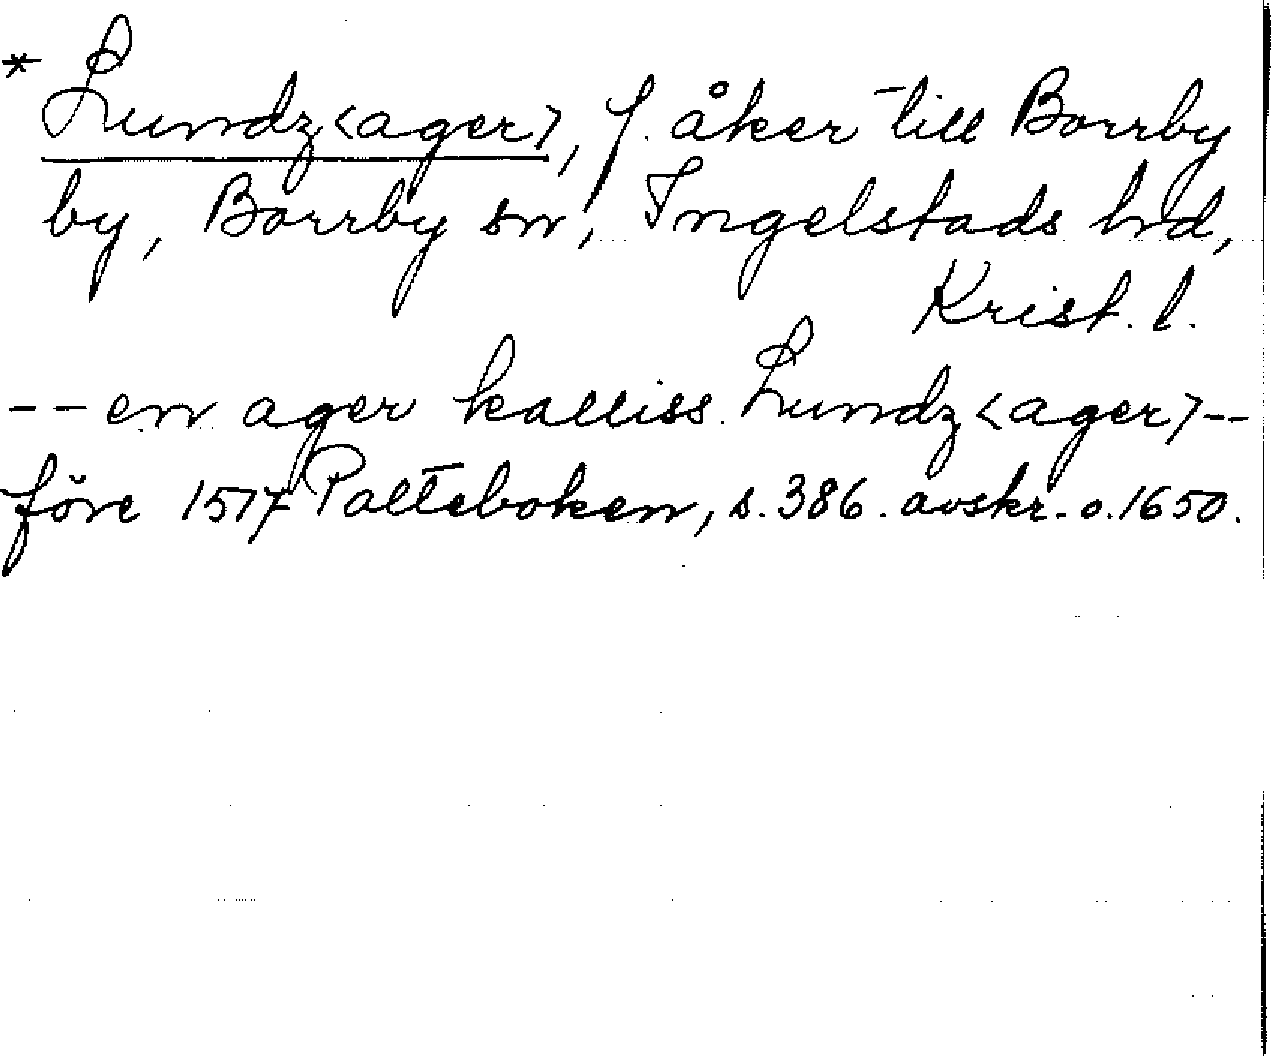 * Lundz<ager>, f. åker till Borrby
by, Borrby sn, Ingelstads hd,
Krist. l.
-- en ager kalliss Lundz<ager> --
före 1517 Palteboken, s. 386. avskr. o. 1650.